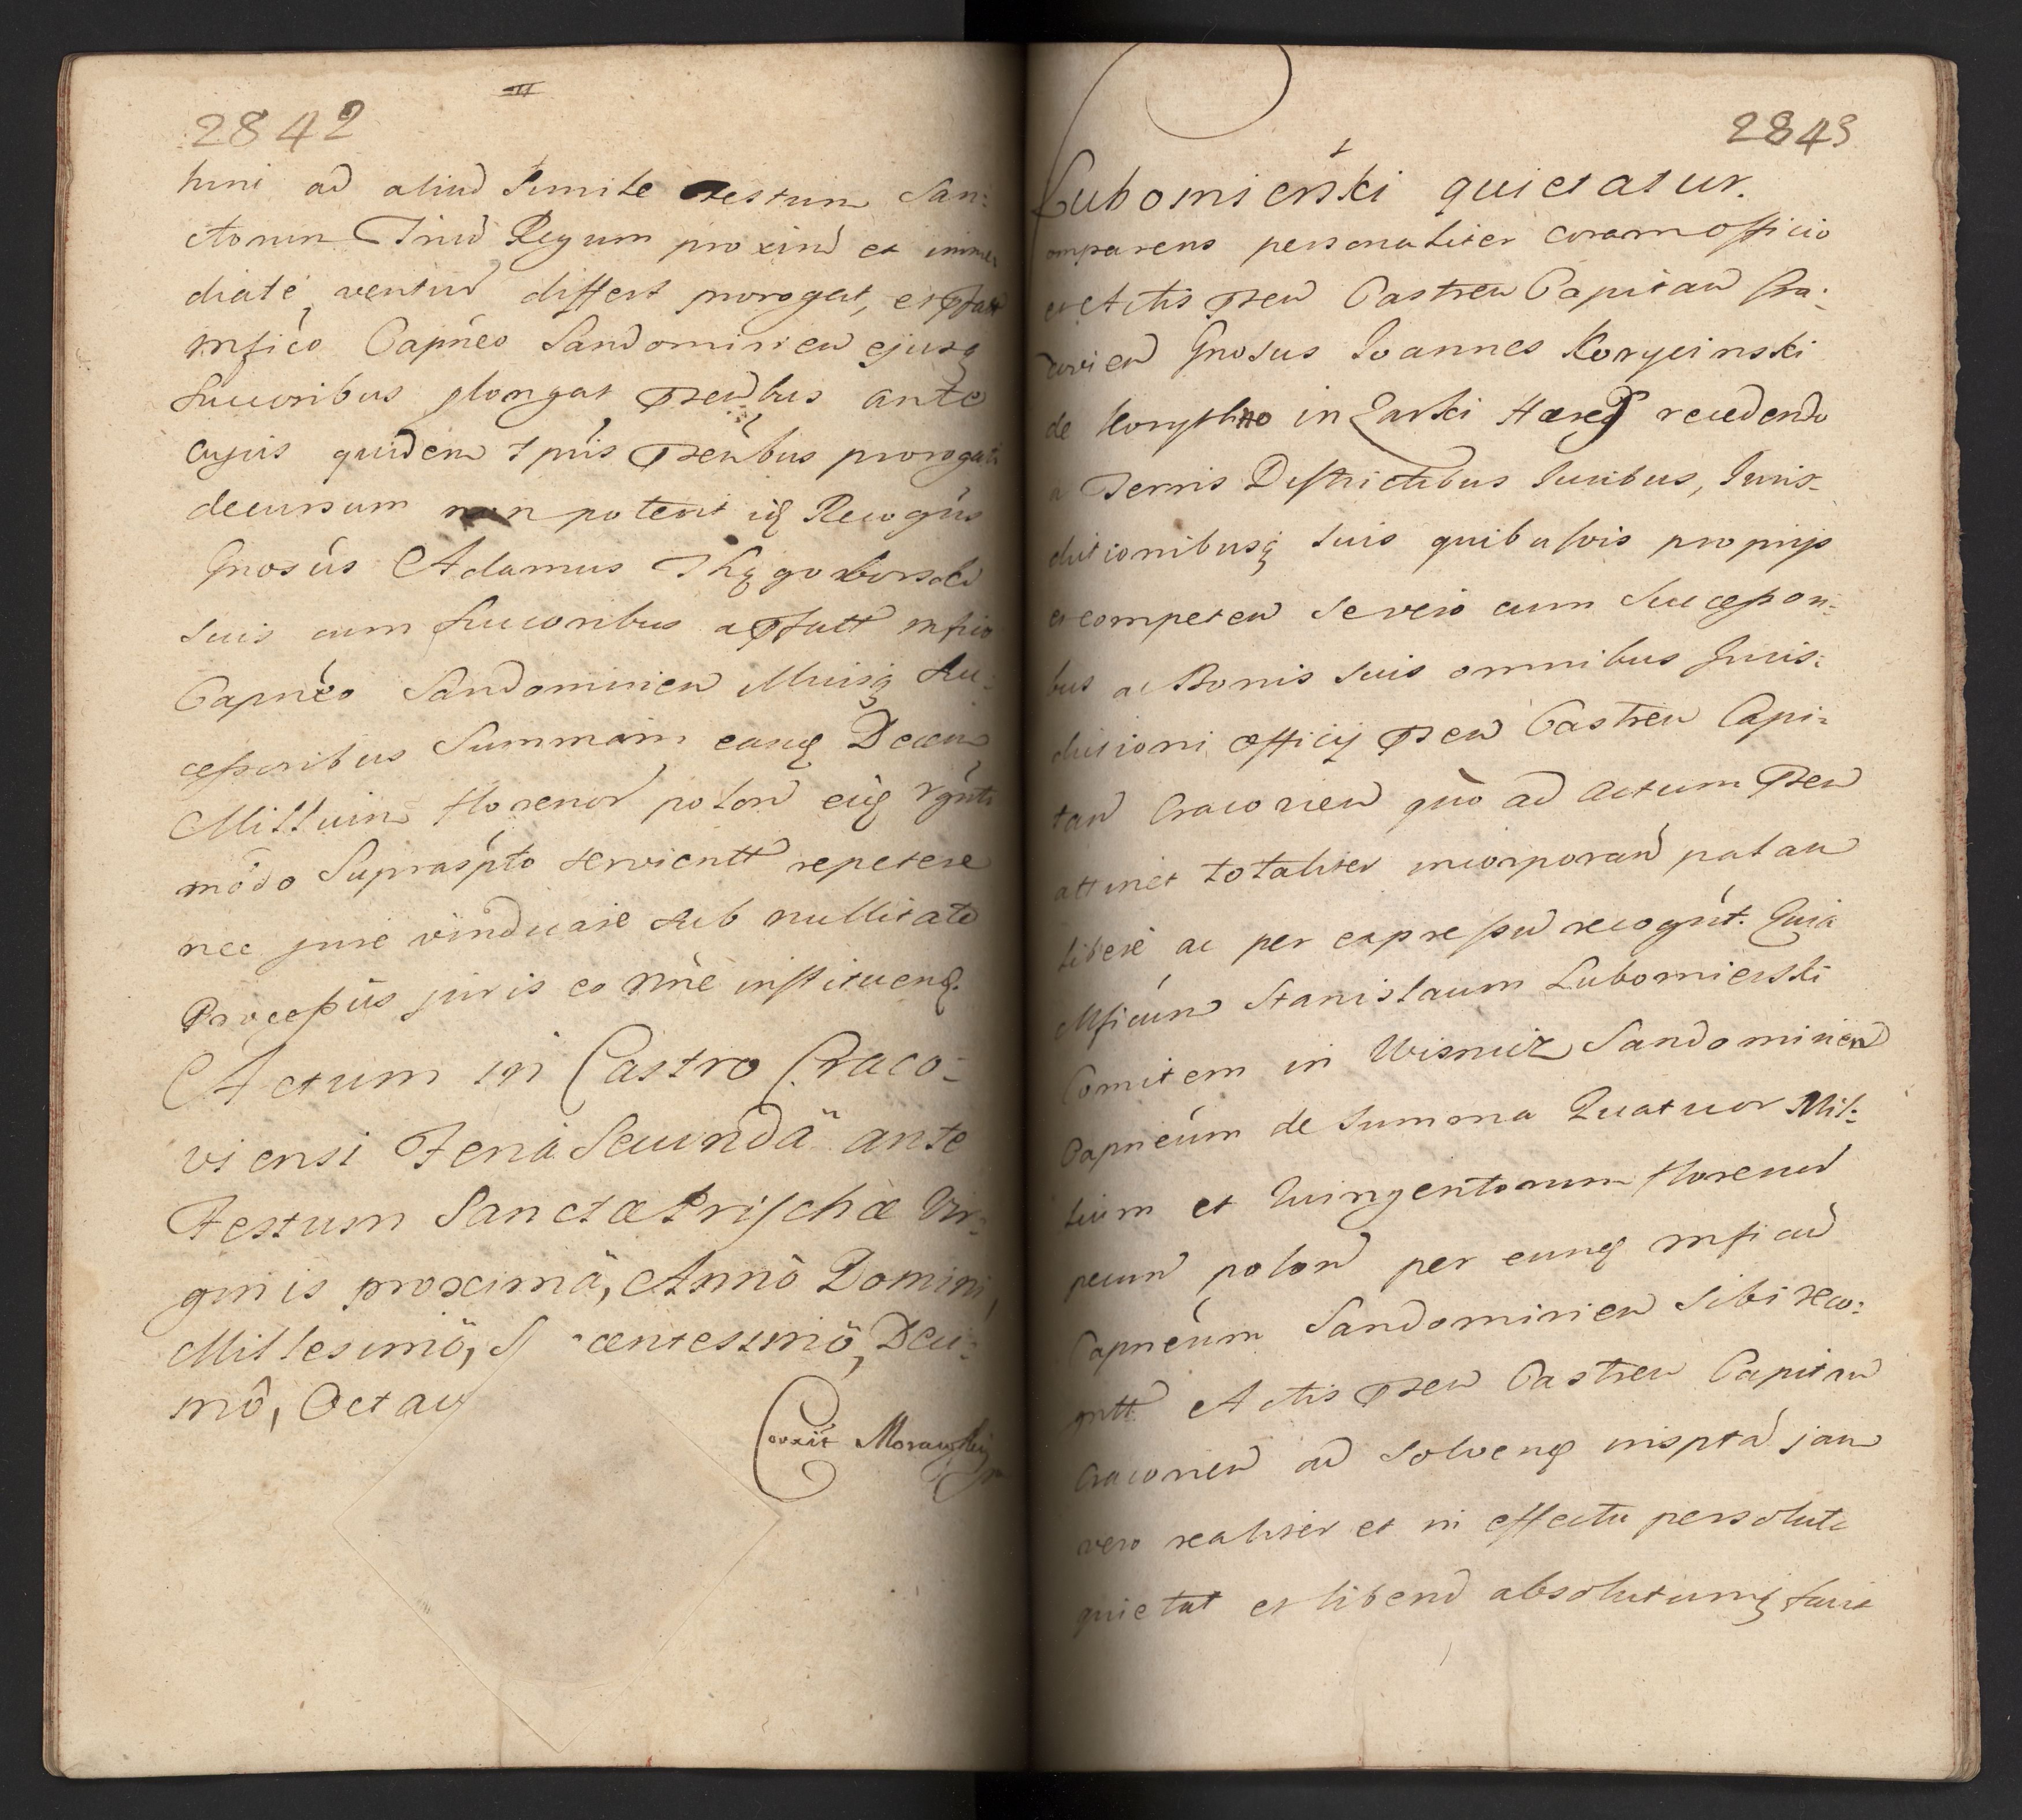 2842
hini ad aliud Simile Festum San:
ctorum Triu Regum proxim et imme
diaté ventur differt prorogat, et
mfico Capnéo Sandomirien ejusq
Succoribus plongat pntibus ante
cujus quidem tpris pntibus prorogati
decursum non poterit idem Recogns
Gnosus Adamus
suis cum Succoribus a pfatt mfico
Capnéo Sandomirien illiusq Suc:
cessoribus Summam eandem Decem
Millium florenor polon
modo Suprascpto servientt repetere
nec jure vindicare sub nullitate
Processus juris eo nne instituend.
Actum in Castro Craco-
viensi Feria Secunda ante
Festum Sanctæ Prischæ Vir-
ginis proximâ, Annô Domini,
Millesimô, S centesimô, Deci:
mô, Octav
Corrxit Morawski
2843
Lubomierski quietatur.
omparens personaliter coram officio
et Actis pnten Castren Capitan Cra:
covien Gnosus Joannes Korycinski
de in Żarki Hæres recedendo
a Terris Districtibus Juribus, Juris-
dictionibusq suis quibusvis proprijs
et competen se vero cum Successori:
bus ac Bonis suis omnibus Juris:
dictioni officij pnten Castren Capi:
tan Cracovien quò ad actum pnten
attinet totaliter incorporand palam
liberè ac per expressum recognt. Quia
Mficum Stanislaum Lubomierski
Comitem in Wisnicz Sandomirien
Capnéum de Summa Quatuor Mil:
lium et Quingentorum florenor
pecun polon per eundem mficum
Capnéum Sandomirien Sibi reco:
gntt Actis pnten Castren Capitan
Cracovien ad solvend inspta jam
vero realiter et in effectu persoluta
quietat et liberum absolutumq facit